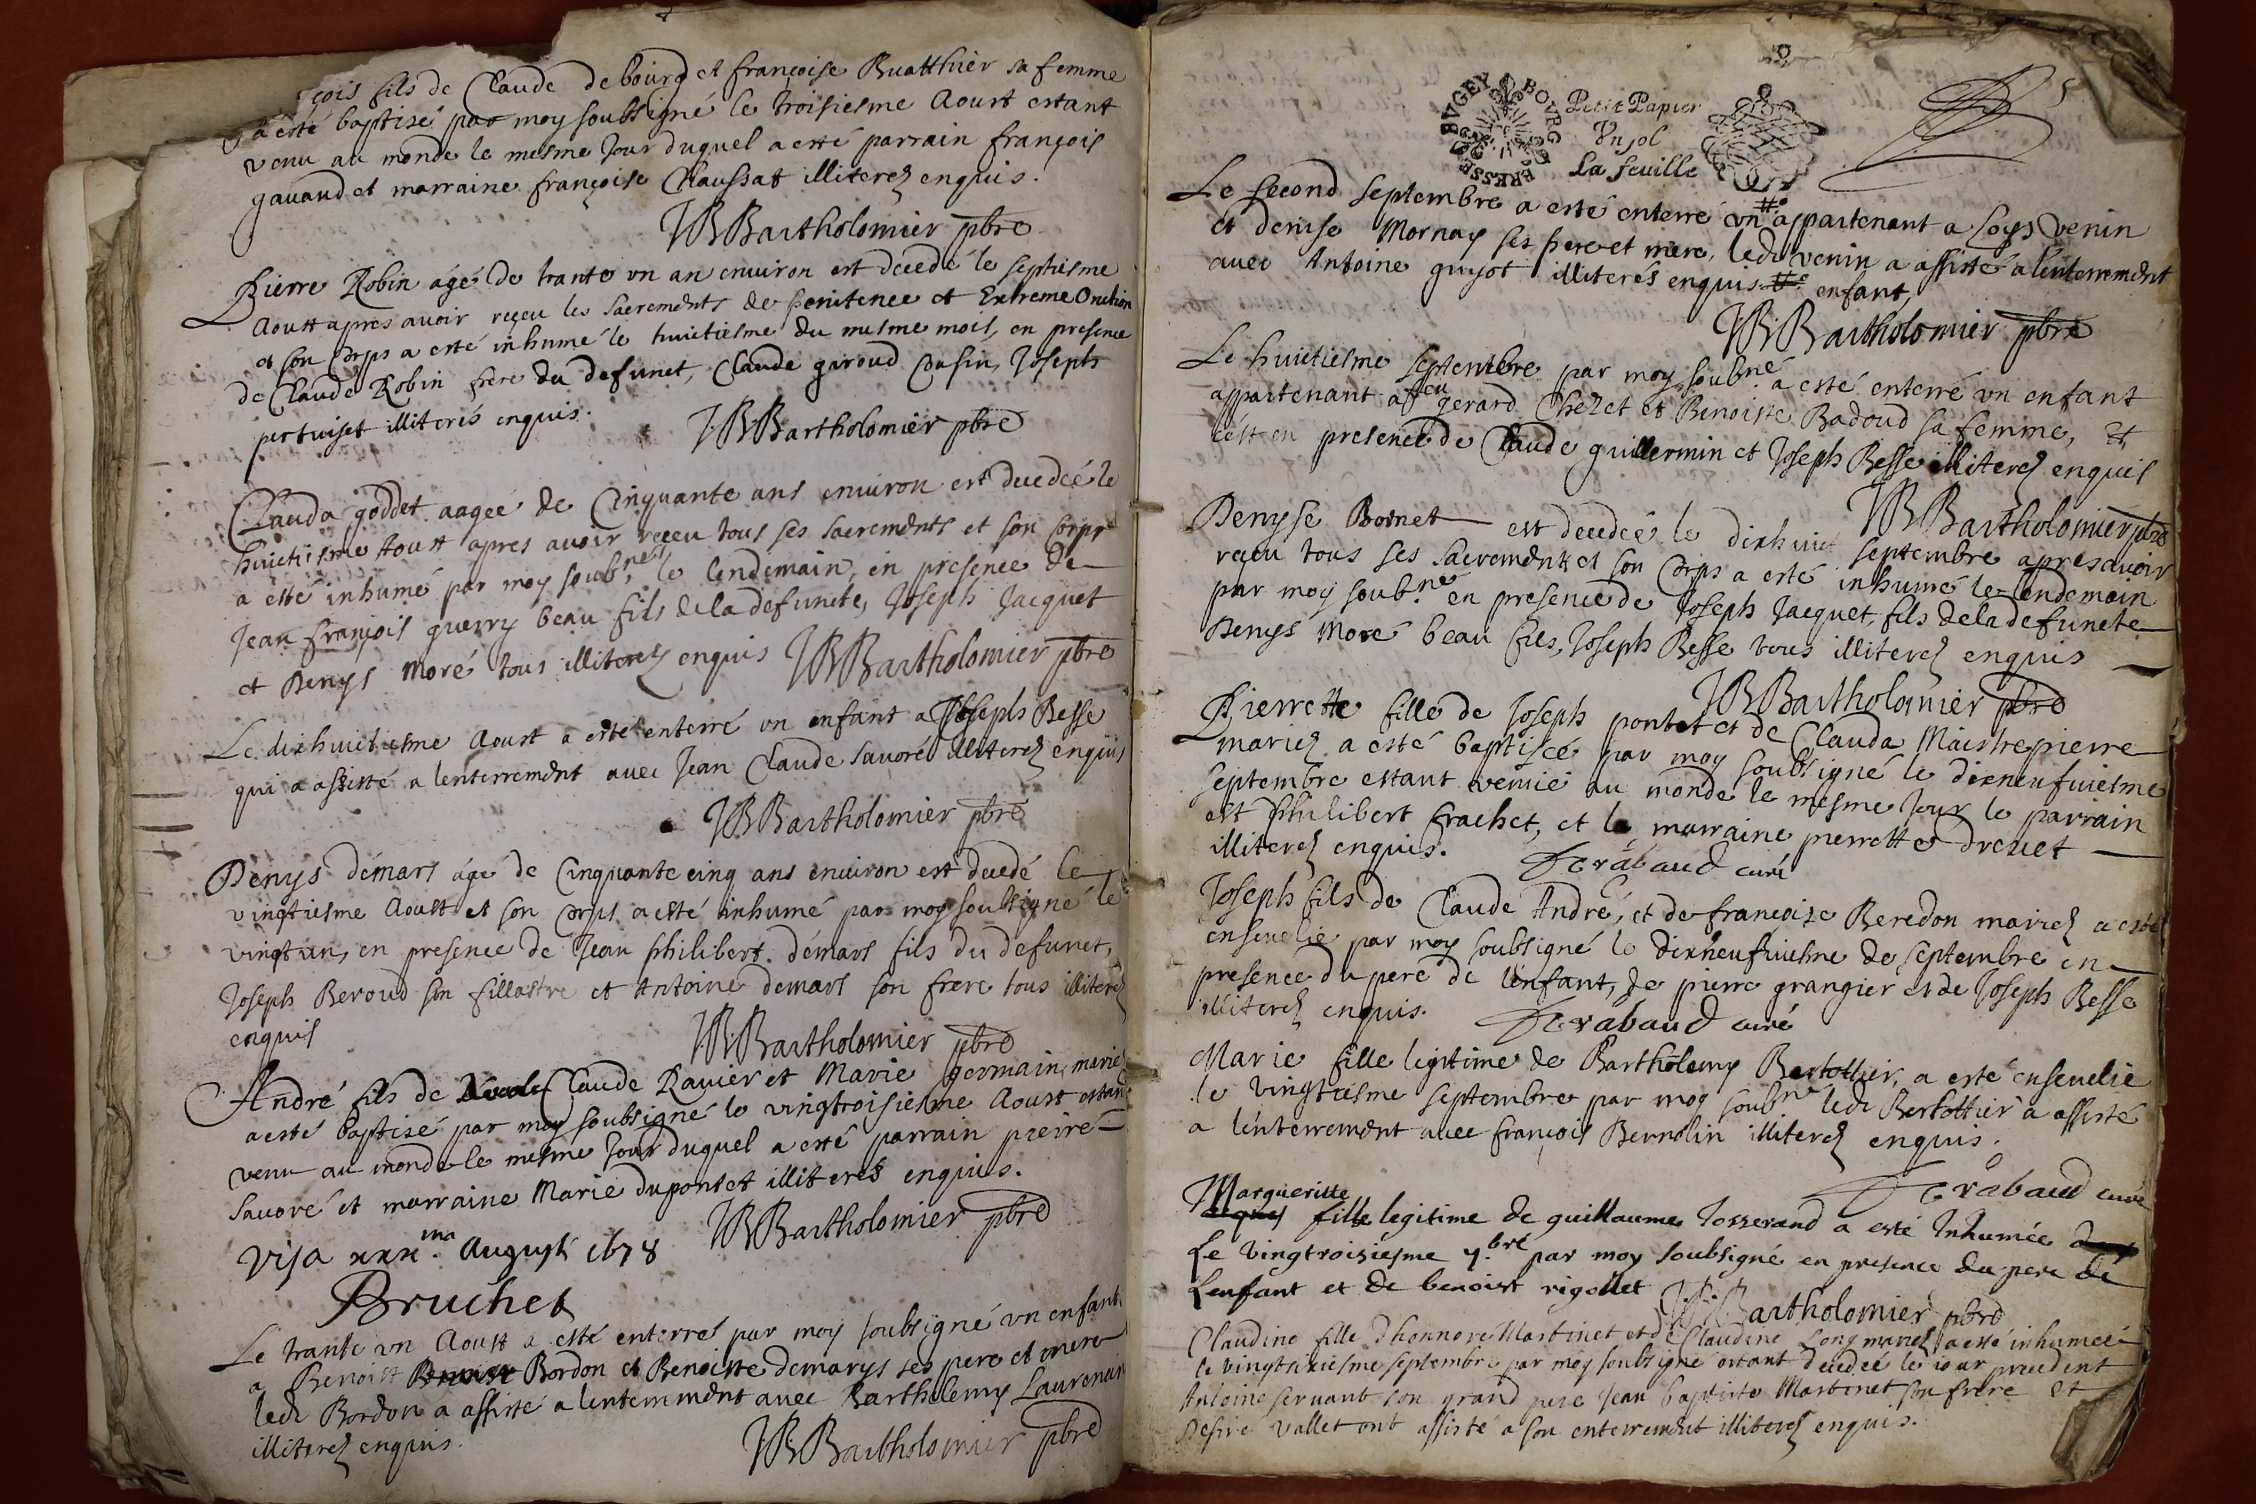 çois fils de Claude debourg et françoise Buatthier sa femme
a esté baptisé par moy soubsigné le troisiesme Aoust estant
venu au monde le mesme Jour duquel a esté parrain françois
gavaud et marraine françoise Chaussat illiterez enquis.
JBBartholomier pbre
Pierre Robin ágé de trante un an environ est décedé le septiesme
Aoust apres avoir reçeu les sacrements de penitence et Extreme Onction
et son corps a esté inhumé le huictiesme du mesme mois, en presence
de Claude Robin frere du defunct, Claude giroud Cousin, Joseph
pertuiset illiterés enquis.
JBBartholomier pbre
Clauda goddet aagée de Cinquante ans environ est decedée le
huictiesme Aoust apres avoir reçeu tous ses sacrements et son corps
a esté inhumé par moy soub.né le lendemain, en presence de
Jean françois guerry beau fils de la defuncte, Joseph Jacquet
et Denys Moré tous illiterez enquis JBBartholomier pbre
Le dixhuictiesme Aoust a esté enterré un enfant a Joseph Besse
qui a assisté a lenterrement avec Jean Claude Savoré illiterez enquis
JBBartholomier pbre
Denys démars ágé de Cinquante cinq ans environ est decedé le
vingtiesme Aoust et son corps a esté inhumé par moy soubsigné le
vingt un, en presence de Jean philibert démars fils du defunct,
Joseph Beroud son fillastre et Antoine demars son frere tous illiterez
enquis
JBBartholomier pbre
André fils de Claude Ravier et Marie germain mariez
a esté baptizé par moy soubsigné le vingtroisiesme Aoust estant
venu au monde le mesme Jour duquel a esté parrain pierre
Savoré et marraine Marie dupontet illiterés enquis.
JBBartholomier pbre
Visa xxx.ma Augusti 1678
Bruchet
Le trante un Aoust a esté enterré par moy soubsigné un enfant
a Benoist Bordon et Benoiste demarys ses pere et mere
ledt Bordon a assisté a lenterrement avec Barthelemy
illiterez enquis.
JBBartholomier pbre
BRESSE BUGEY BOURG
Petit Papier
Un sol
La feuille
5
Le second septembre a esté enterré un #.o appartenant a Loys Venin
et denise Mornay ses pere et mere, ledt venin a assisté a lenterrement
avec Antoine guyot illiterés enquis #.o enfant
JBBartholomier pbre
Le huictiesme septembre par moy soubné a esté enterré un enfant
appartenant a feu gerard Chezet et Benoiste Badoud sa femme, et
cest en presence de Claude guillermin et Joseph Besse illiterez enquis
JBBartholomier pbre
Denyse Bornet est decedée le dixhuict septembre apres avoir
reçeu tous ses sacrements et son corps a esté inhumé le lendemain
par moy soub.né en presence de Joseph Jacquet, fils de la defuncte
Denys Moré beau fils, Joseph Besse tous illiterez enquis
JBBartholomier pbre
Pierrette fille de Joseph pontet et de Clauda Maistrepierre
mariez a esté baptisée par moy soubsigné le dixneufuiesme
septembre estant venue au monde le mesme Jour le parrain
est Philibert frachet, et la marraine pierrette drevet
illiterez enquis. Ferabaud curé
Joseph fils de Claude André, et de francoize Beredon mariez a esté
ensevelie par moy soubsigné le dixneufuiesme de septembre en
presence du pere de l'enfant, de pierre grangier et de Joseph Besse
illiterez enquis. Ferabaud curé
Marie fille legitime de Barthelemy Bertottier, a esté ensevelie
le vingtiesme septembre par moy soubné ledt Bertottier a assisté
a lenterrement avec françois Bernolin illiterez enquis.
Ferabaud curé
Margueritte
fille legitime de guillaume Josserand a esté Inhumée
Le vingtroisiesme 7.bre par moy soubsigné en presence du pere de
Lenfant et de benoist rigollet JBBartholomier pbre
Claudine fille Dhonnore Martinet et de Claudine Long mariez a esté inhumeé
le vingtsixiesme septembre par moy soubsigné estant decedeé le jour precedent
Antoine servant son grand pere Jean baptiste Martinet son frere et
Desiré Vallet ont assisté a son enterrement illiterez enquis.